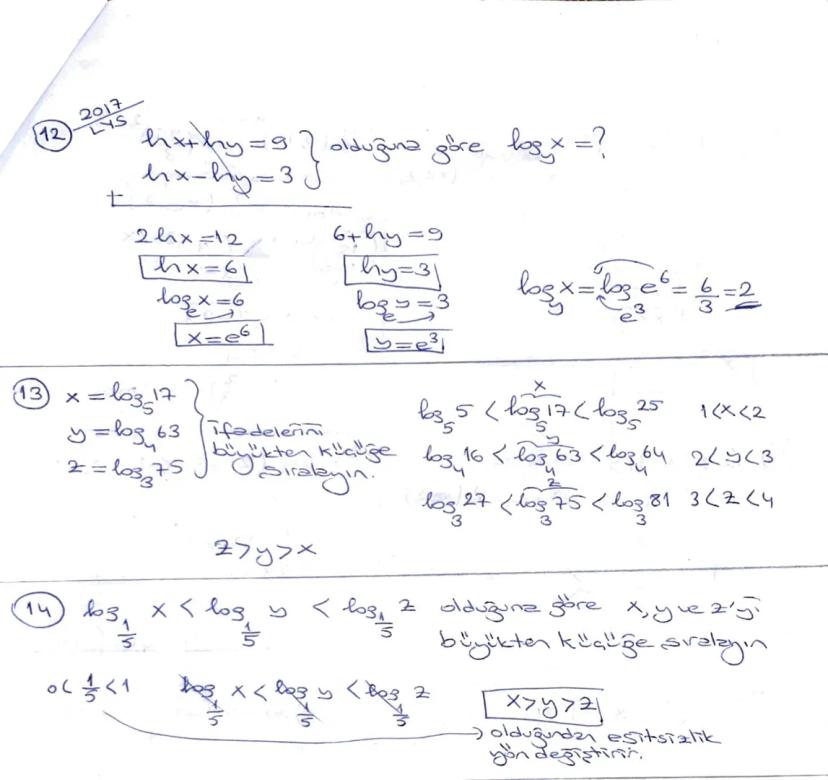 12 2017 LYS
lnx+lny=9
lnx-lny=3 } olduğuna göre log_y x=?
+
2lnx=12 6+lny=9
lnx=6 lny=3
log_e x=6 log_e y=3
x=e^6 y=e^3
log_y x=log_{e^3} e^6=6/3=2
13 x=log_5 17
y=log_4 63
z=log_3 75
ifadelerini
büyükten küçüğe
sıralayın.
x
log_5 5 < log_5 17 < log_5 25 1<x<2
y
log_4 16 < log_4 63 < log_4 64 2<y<3
z
log_3 27 < log_3 75 < log_3 81 3<z<4
z>y>x
14 log_{1/5} x < log_{1/5} y < log_{1/5} z olduğuna göre x,y ve z'yi
büyükten küçüğe sıralayın
0<1/5<1 log_{1/5} x < log_{1/5} y < log_{1/5} z
x>y>z
→ olduğundan eşitsizlik
yön değiştirir.